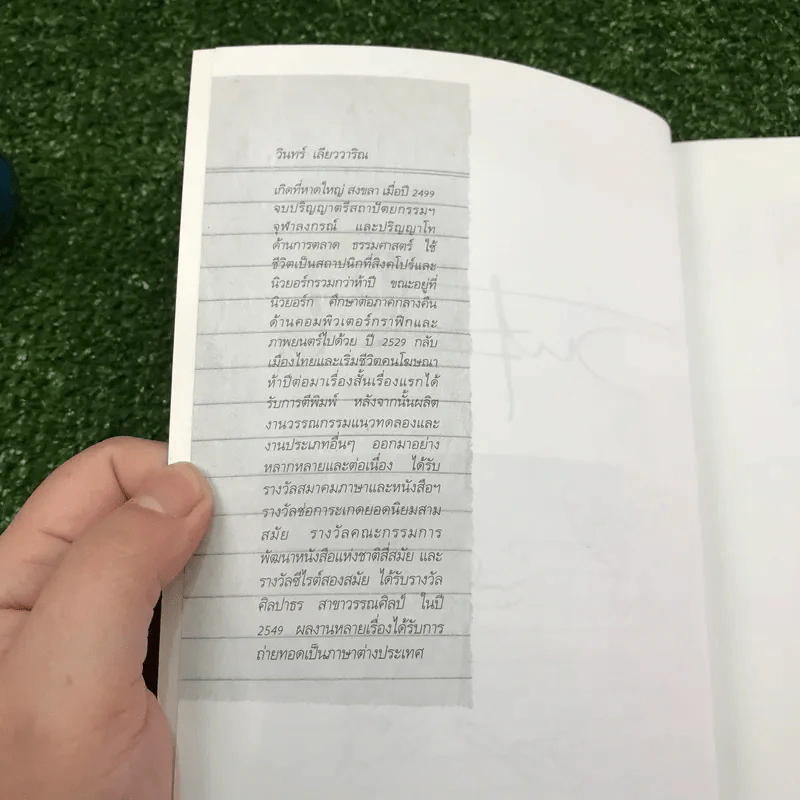 วินทร์ เลียววาริณ
เกิดที่หาดใหญ่ สงขลา เมื่อปี 2499
จบปริญญาตรีสถาปัตยกรรมฯ
จุฬาลงกรณ์ และปริญญาโท
ด้านการตลาด ธรรมศาสตร์ ใช้
ชีวิตเป็นสถาปนิกที่สิงคโปร์และ
นิวยอร์กรวมกว่าห้าปี ขณะอยู่ที่
นิวยอร์ก ศึกษาต่อภาคกลางคืน
ด้านคอมพิวเตอร์กราฟิกและ
ภาพยนตร์ไปด้วย ปี 2529 กลับ
เมืองไทยและเริ่มชีวิตคนโฆษณา
ห้าปีต่อมาเรื่องสั้นเรื่องแรกได้
รับการตีพิมพ์ หลังจากนั้นผลิต
งานวรรณกรรมแนวทดลองและ
งานประเภทอื่นๆ ออกมาอย่าง
หลากหลายและต่อเนื่อง ได้รับ
รางวัลสมาคมภาษาและหนังสือฯ
รางวัลช่อการะเกดยอดนิยมสาม
สมัย รางวัลคณะกรรมการ
พัฒนาหนังสือแห่งชาติสี่สมัย และ
รางวัลซีไรต์สองสมัย ได้รับรางวัล
ศิลปาธร สาขาวรรณศิลป์ ในปี
2549 ผลงานหลายเรื่องได้รับการ
ถ่ายทอดเป็นภาษาต่างประเทศ